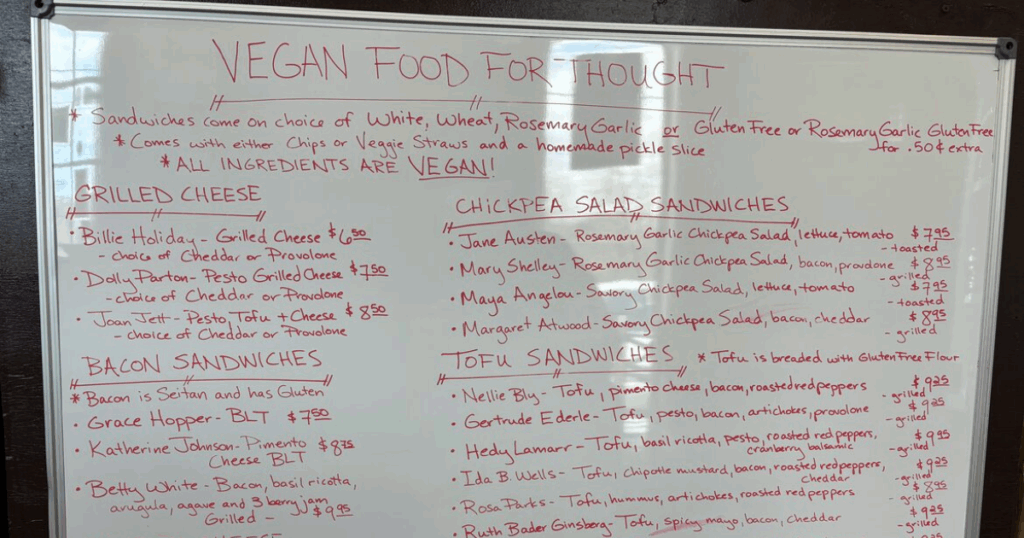 VEGAN FOOD FOR THOUGHT
* Sandwiches come on choice of White, Wheat, Rosemary Garlic or Gluten Free or Rosemary Garlic Gluten Free
for .50¢ extra
* Comes with either Chips or Veggie Straws and a homemade pickle slice
* ALL INGREDIENTS ARE VEGAN!
GRILLED CHEESE
• Billie Holiday - Grilled Cheese $6.50
- choice of Cheddar or Provolone
• Dolly Parton - Pesto Grilled Cheese $7.50
- choice of Cheddar or Provolone
• Joan Jett - Pesto Tofu + Cheese $8.50
- choice of Cheddar or Provolone
BACON SANDWICHES
* Bacon is Seitan and has Gluten
• Grace Hopper - BLT $7.50
• Katherine Johnson - Pimento $8.75
Cheese BLT
• Betty White - Bacon, basil ricotta,
arugula, agave and 3 berry jam
Grilled - $9.95
CHICKPEA SALAD SANDWICHES
• Jane Austen - Rosemary Garlic Chickpea Salad, lettuce, tomato $7.95
- toasted
• Mary Shelley - Rosemary Garlic Chickpea Salad, bacon, provolone $8.95
- grilled
• Maya Angelou - Savory Chickpea Salad, lettuce, tomato $7.95
- toasted
• Margaret Atwood - Savory Chickpea Salad, bacon, cheddar $8.95
- grilled
TOFU SANDWICHES * Tofu is breaded with Gluten Free Flour
• Nellie Bly - Tofu, pimento cheese, bacon, roasted red peppers $9.25
- grilled
• Gertrude Ederle - Tofu, pesto, bacon, artichokes, provolone $9.25
- grilled
• Hedy Lamarr - Tofu, basil ricotta, pesto, roasted red peppers, $9.95
cranberry balsamic - grilled
• Ida B. Wells - Tofu, chipotle mustard, bacon, roasted red peppers, $9.25
cheddar - grilled
• Rosa Parks - Tofu, hummus, artichokes, roasted red peppers $8.95
- grilled
• Ruth Bader Ginsberg - Tofu, spicy mayo, bacon, cheddar $9.25
- grilled